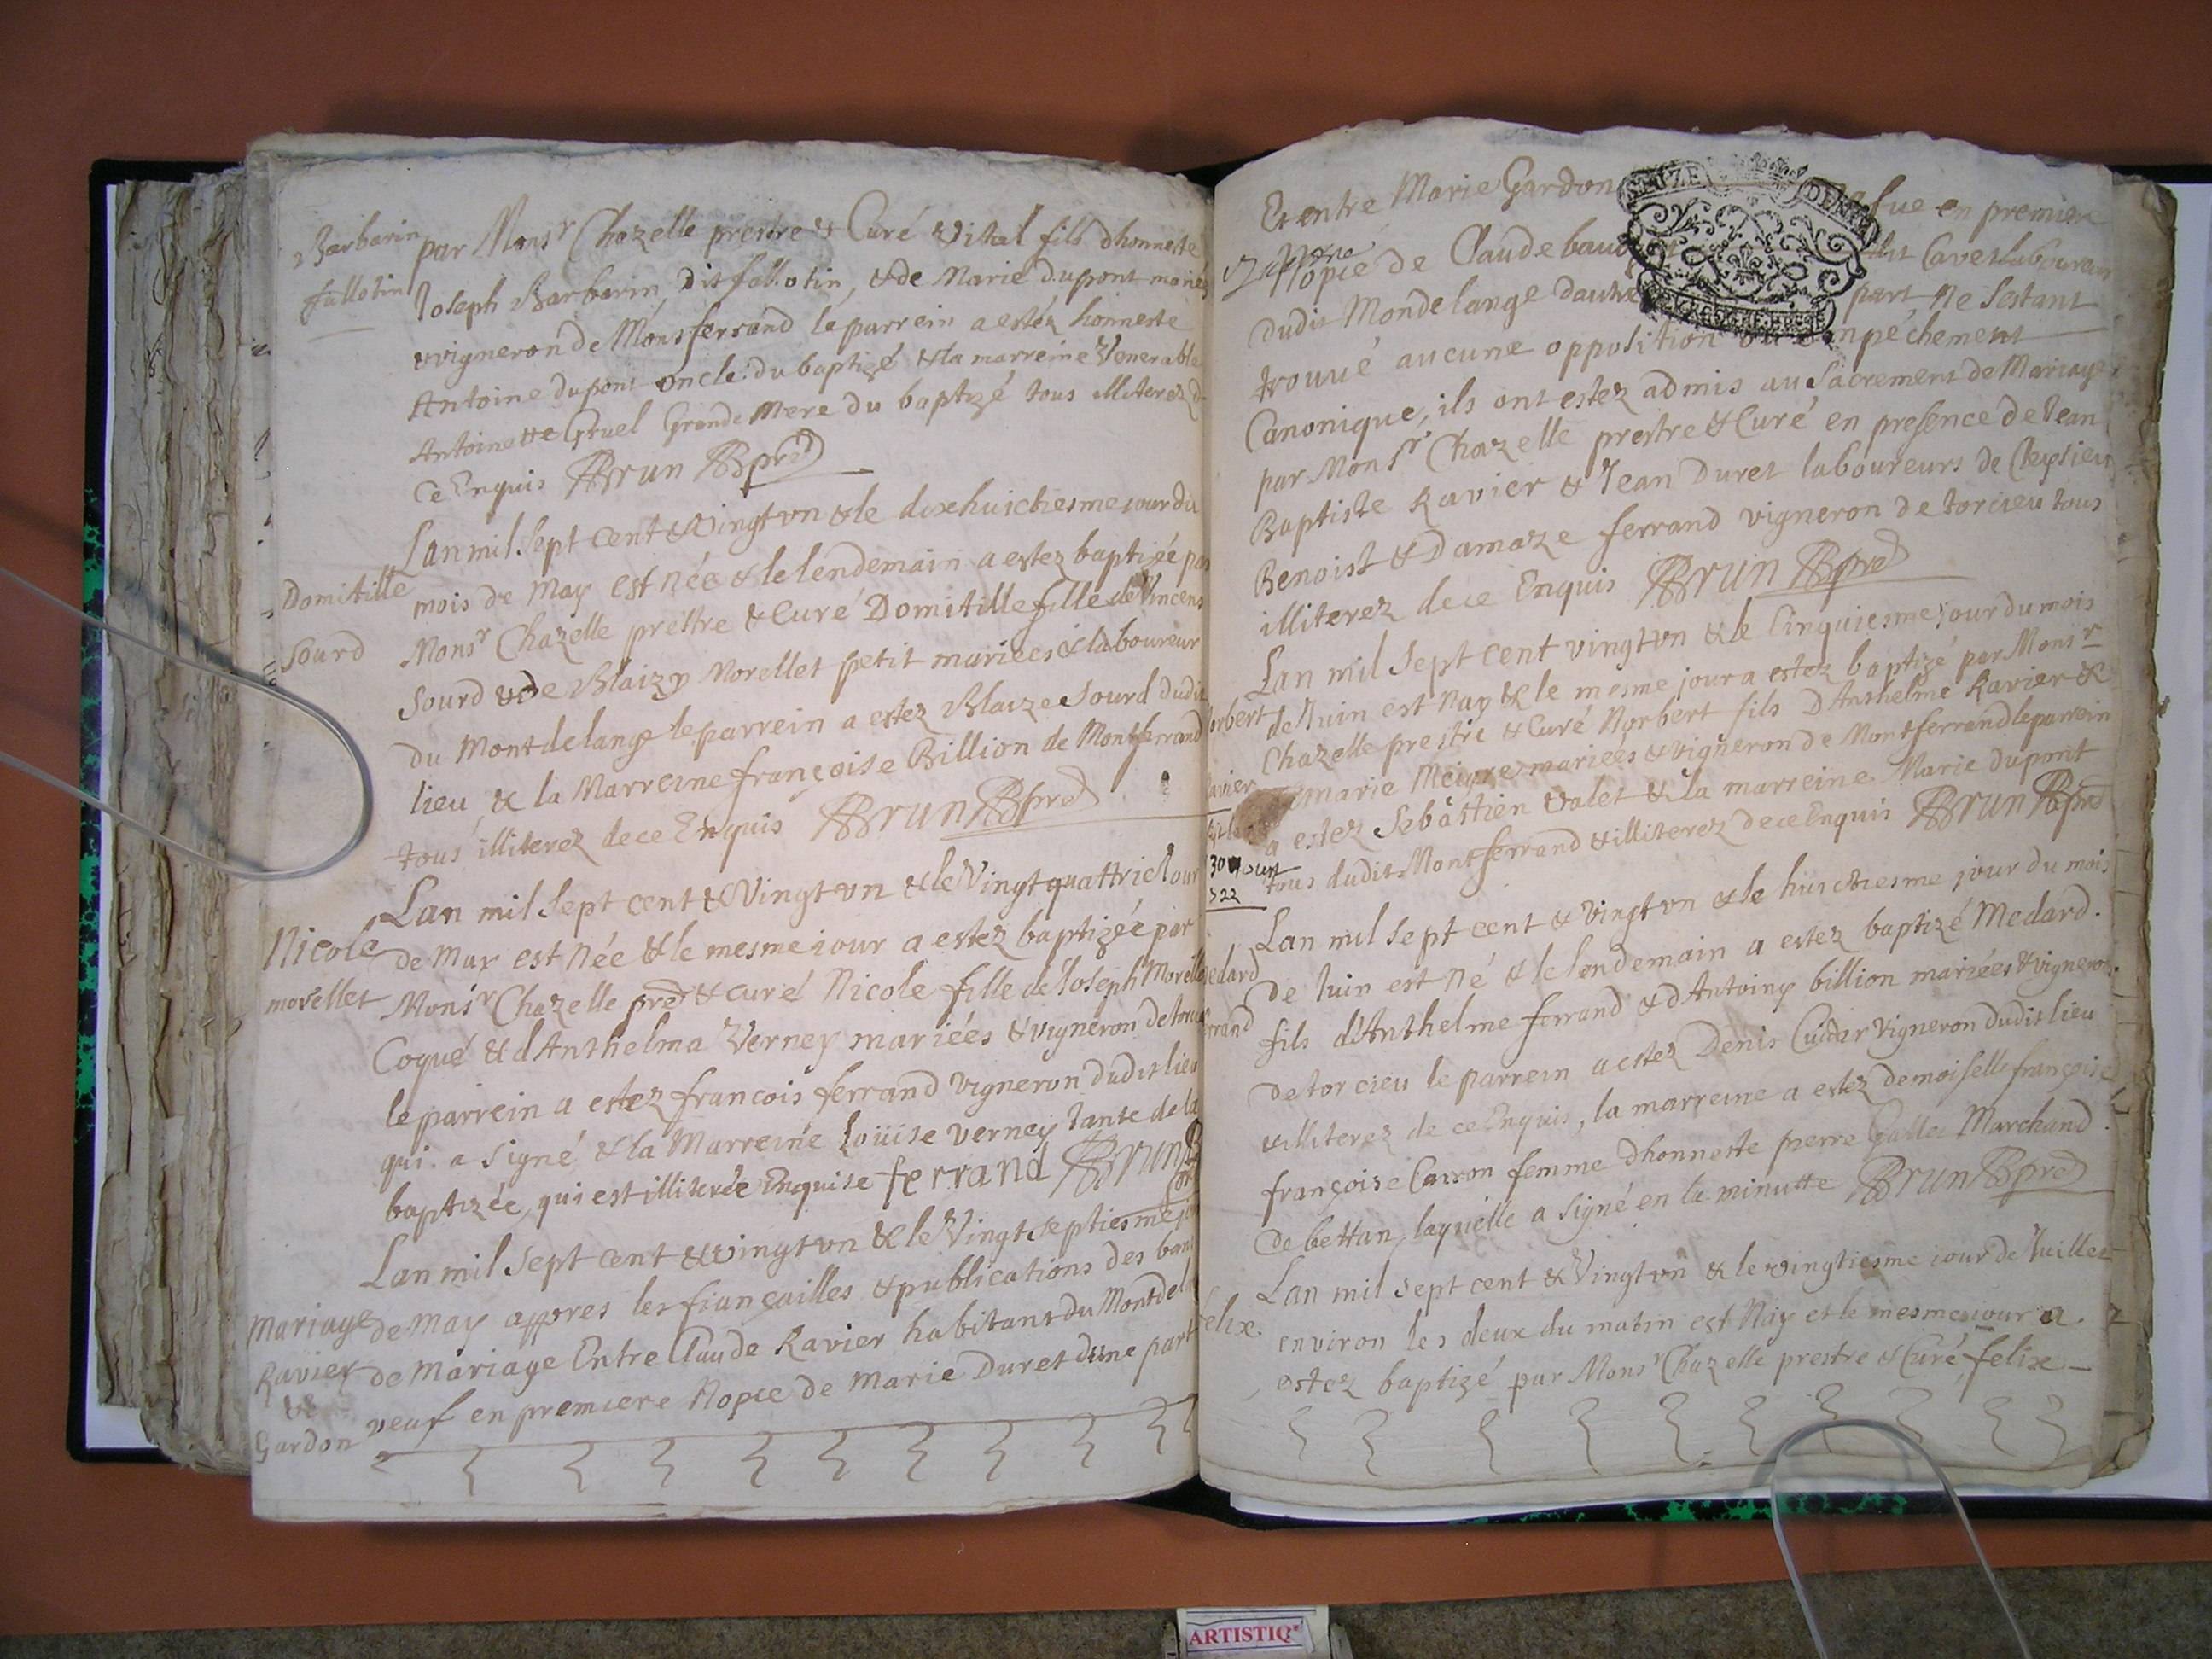 Barbarin
fallotin
par Monsr Chazelle prestre & Curé Vital fils dhonneste
Joseph Barbarin, dit fallotin, & de Marie Dupont mariés
vigneron de Monsferrand le parrein a estéz honneste
Antoine dupont oncle du baptizé & la marreine Venerable
Antoinette Gruel Grande Mere du baptizé tous illiterez d
Ce Enquis Brun pre
Lan mil Sept cent & Vingt vn & le dixhuictiesme iour du
Domitille
mois de May est Née & le lendemain a estez baptizée par
Monsr Chazelle prestre & Curé Domitille fille de Vincent
Sourd
Sourd & de Blaizy Morellet petit mariées & laboureur
du Montdelange le parrein a estez Blaize Sourd dudit
lieu & la Marreine françoise Billion de Montferrand
tous illiterez de ce Enquis Brun pre
Lan mil Sept cent & Vingt vn & le Vingt quattrie Jour
Nicole
de May est Née & le mesme iour a estez baptizée par
morellet
Monsr Chazelle pre & curé Nicole fille de Joseph Morelle
Coqué & dAnthelma Verney mariées & vigneron de
le parrein a estez francois ferrand vigneron dudit lieu
qui a signé & la Marreine Loüise verney tante de la
baptizée, qui est illiterée Enquise ferrand Brun
Lan mil Sept cent & vingt vn & le Vingt septiesme jou
Mariage
de May appres les fiançailles & publications des ban
Ravier
de Mariage Entre Claude Ravier habitant du Montdela
&
veuf en premiere Nopce de Marie Duret dune part
Gardon
Et entre Marie Gardon efue en premiere
Nopce de Claude bau dit Cavet laboureur
dudit Mondelange dautre part Ne Sestant
trouué aucune opposition ou Empéchement
Canonique, ils ont estez admis au Sacrement de Mariage
par Monsr Chazelle prestre & Curé en presence de Jean
Baptiste Ravier & Jean Duret laboureurs de Cleysieu
Benoist & Damaze ferrand vigneron de torcieu tous
illiterez de ce Enquis Brun pre
Lan mil Sept cent vingt vn & le Cinquiesme jour du mois
orbert
de Juin est Nay & le mesme jour a estez baptizé par Monsr
Chazelle prestre & Curé Norbert fils DAnthelme Ravier &
avier
marie mariées & vigneron de Montferrand le parrein
a estez Sebastien valet & la marreine Marie dupont
30 aout
722
tous dudit Montferrand & illiterez de ce Enquis Brun pre
Lan mil Sept cent & Vingt vn & le huictiesme jour du mois
edard
de Juin est Né & le lendemain a estez baptizé Medard
rrand
fils dAnthelme ferrand & dAntoiny billion mariées & vigneron
de torcieu le parrein a estez Denis Vigneron dudit lieu
& illiterez de ce Enquis, la marreine a estez demoiselle françoise
françoise Carron femme dhonneste pierre Marchand
de bettan, laquelle a signé en la minutte Brun pre
Lan mil sept cent & Vingt vn & le vingtiesme iour de Juillet
elix
environ les deux du matin est Nay et le mesme iour a
estez baptizé par Monsr Chazelle prestre & Curé felix
ARTISTIQ